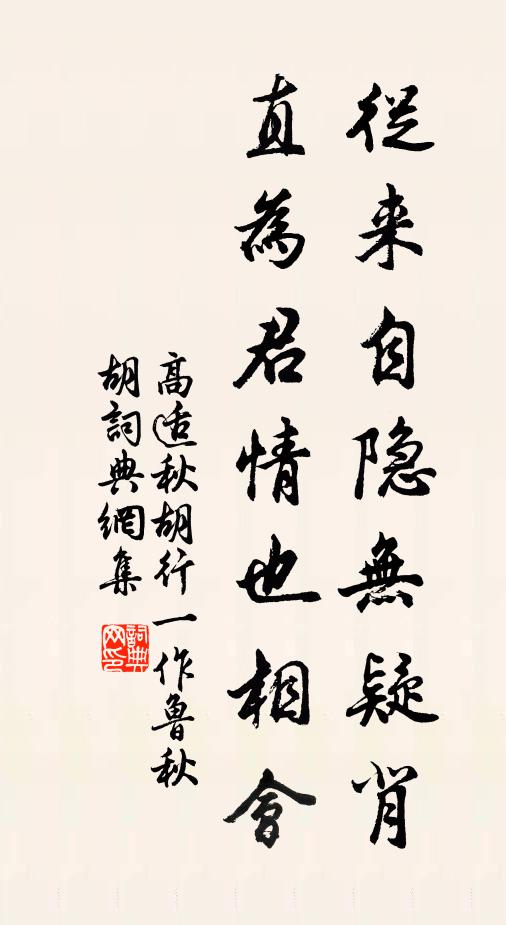 従来自隐無疑背
直為君情也相會
高适秋胡行一作魯秋
胡詞典網集
詞典
网印